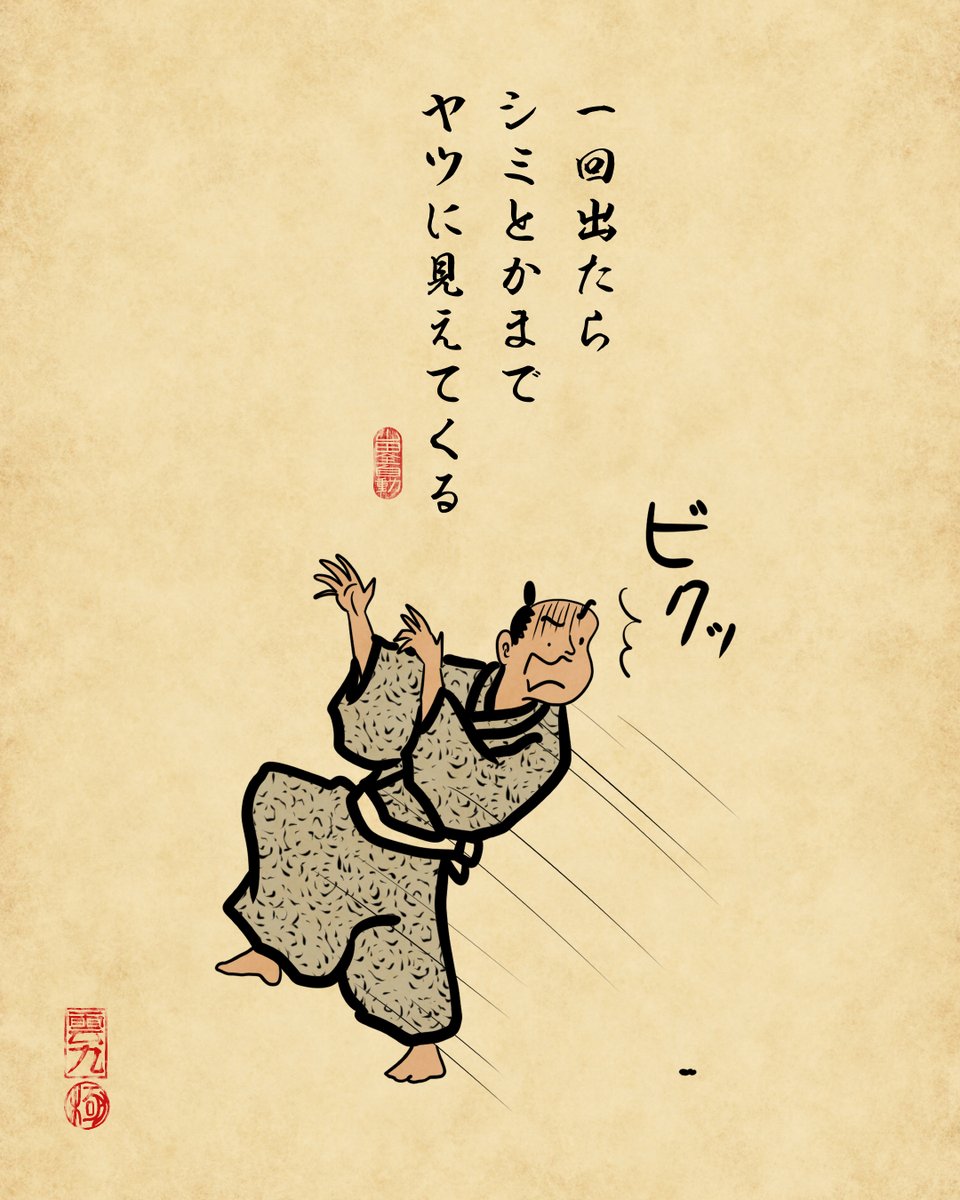 一回出たら
シミとかまで
ヤツに見えてくる
ビクッ